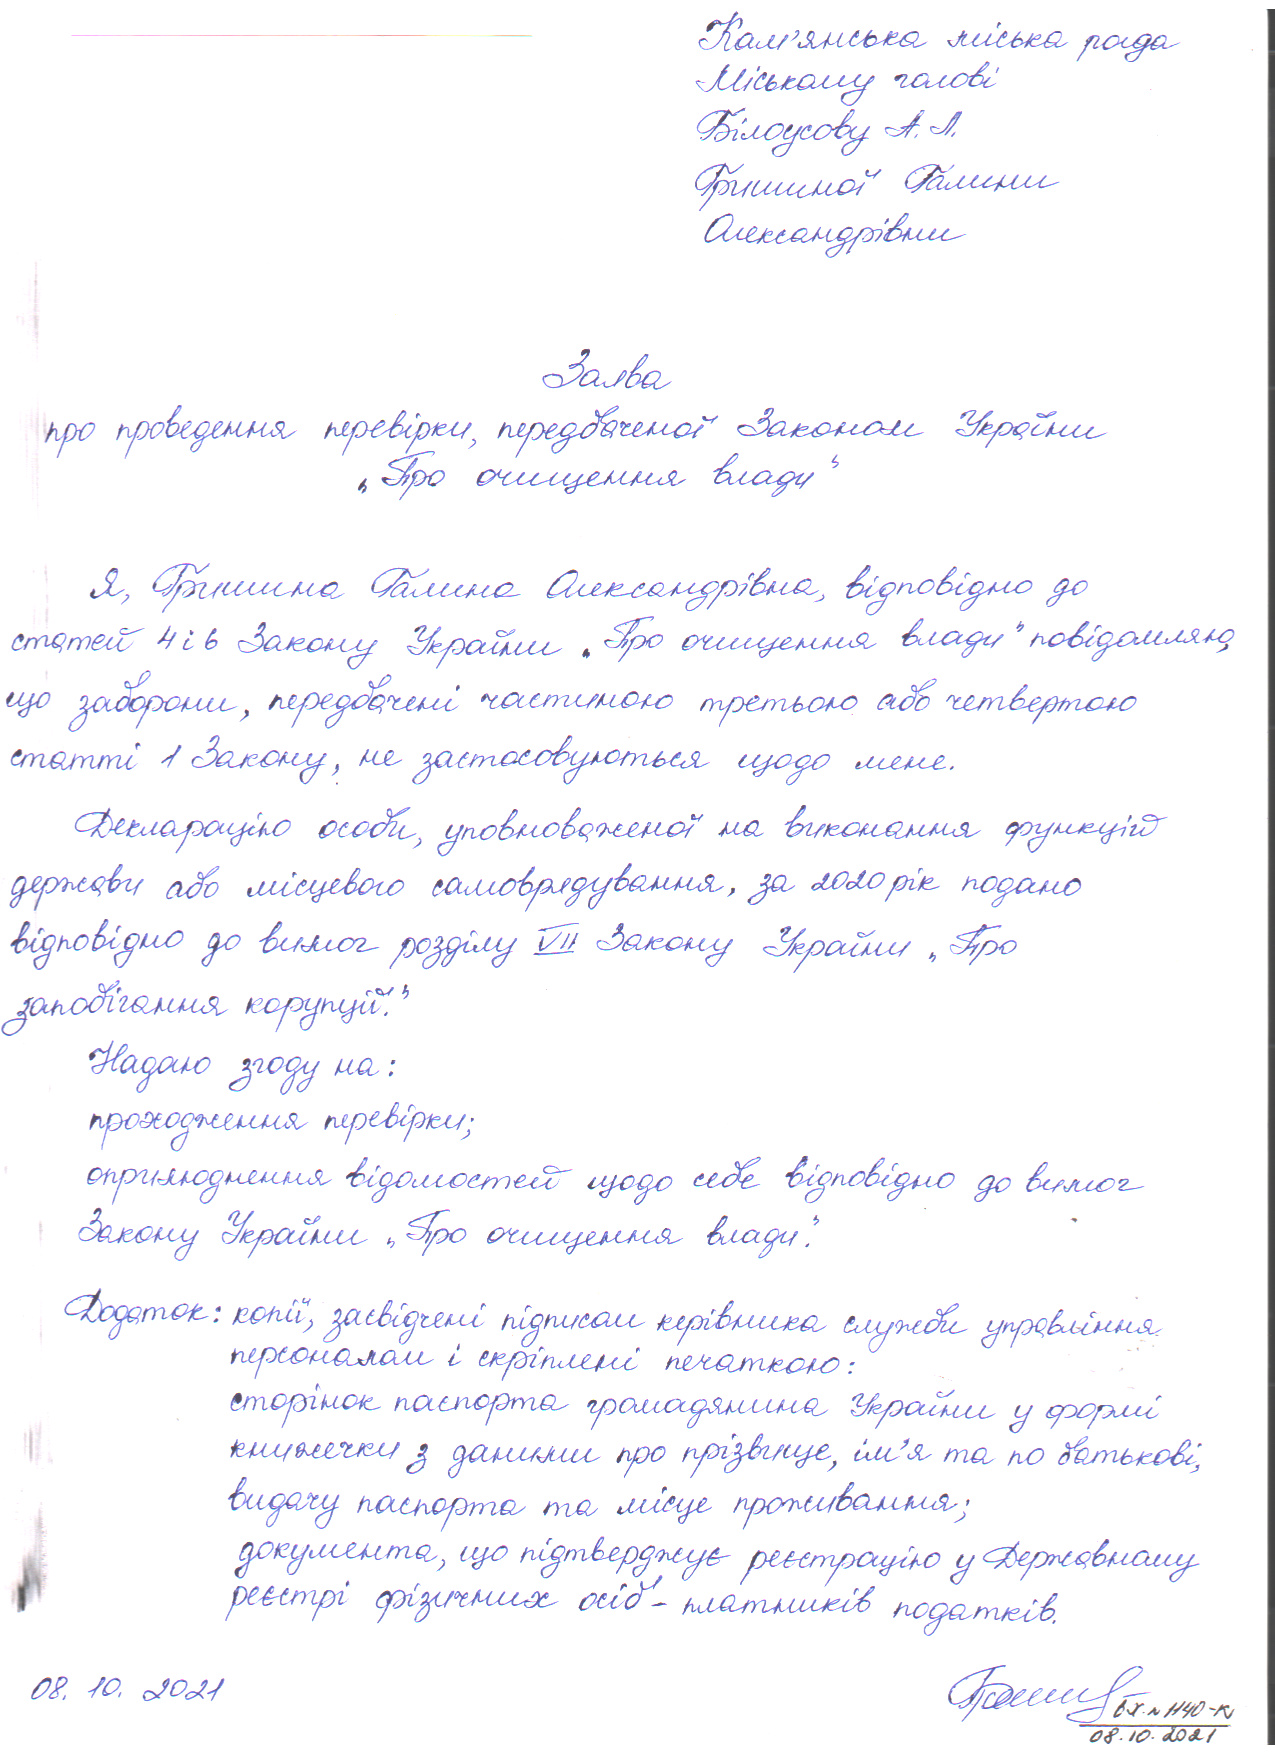 Кам'янська міська рада
Міському голові
Білоусову А. Л.
Гришиної Галини
Олександрівни
Заява
про проведення перевірки, передбаченої Законом України
„Про очищення влади"
Я, Гришина Галина Олександрівна, відповідно до
статей 4 і 6 Закону України „Про очищення влади" повідомляю,
що заборони, передбачені частиною третьою або четвертою
статті 1 Закону, не застосовуються щодо мене.
Декларацію особи, уповноваженої на виконання функцій
держави або місцевого самоврядування, за 2020 рік подано
відповідно до вимог розділу VII Закону України „Про
запобігання корупції."
Надаю згоду на:
проходження перевірки;
оприлюднення відомостей щодо себе відповідно до вимог
Закону України „Про очищення влади".
Додаток: копії, засвідчені підписом керівника служби управління
персоналом і скріплені печаткою:
сторінок паспорта громадянина України у формі
книжечки з даними про прізвище, ім'я та по батькові,
видачу паспорта та місце проживання;
документа, що підтверджує реєстрацію у Державному
реєстрі фізичних осіб - платників податків.
08. 10. 2021
вх. № 1140-К
08.10.2021